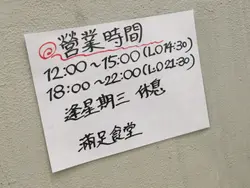 @營業時間
12:00~15:00(LO14:30)
18:00~22:00(LO21:30)
逢星期三 休息
滿足食堂